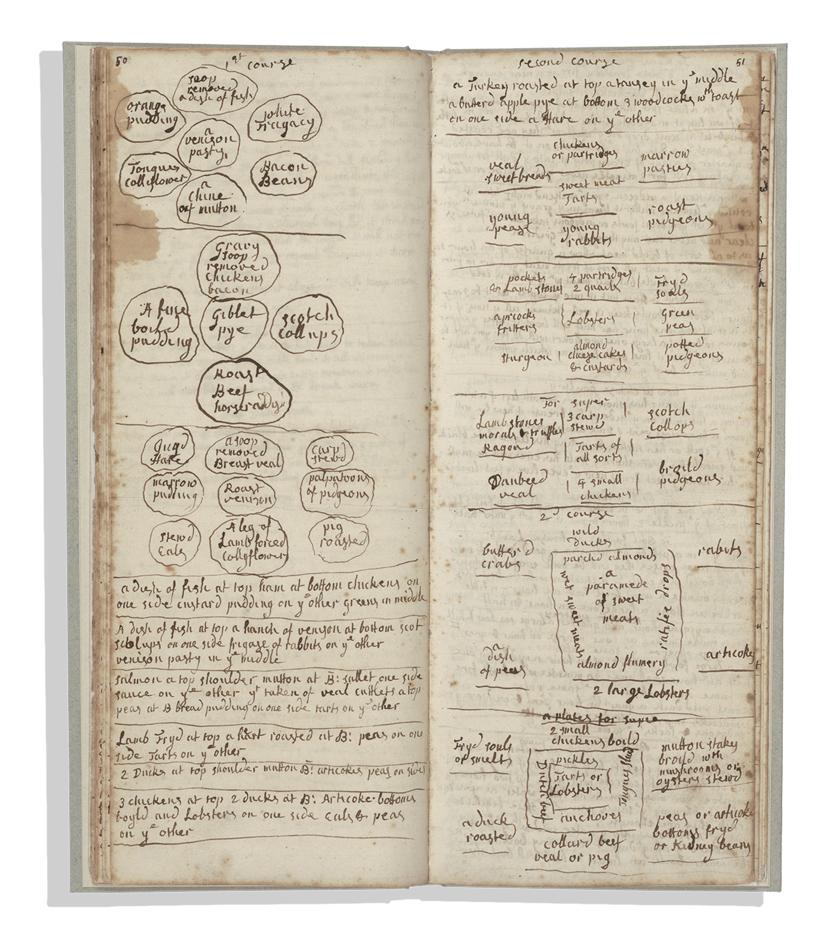 50
1st course
soop
removed
a dish of fish
orange
pudding
white
fragacy
a
venison
pasty
Tongues
collyflower
Bacon
Beans
a
chine
of mutton
Gravy
soop
removed
chickens
bacon
A fine
boild
pudding
Giblet
pye
scotch
collups
Roast
Beef
horseraddy
Gugd
Hare
a soop
removed
Breast veal
carp
stewd
marrow
puding
Roast
venison
palpatoons
of pidgeons
stewd
Eals
A leg of
Lamb forced
collyflower
pig
roasted
a dish of fish at top ham at bottom chickens on
one side custard pudding on ye other greens in middle
A dish of fish at top a hanch of venison at bottom scot
collups on one side frigase of rabbits on ye other
venison pasty in ye middle
salmon a top shoulder mutton at B: sallet one side
sauce on ye other yt taken of veal cutlets a top
peas at B bread pudding on one side tarts on ye other
Lamb Fryd at top a hart roasted at B: peas on one
side Tarts on ye other
2 Ducks at top shoulder mutton B: articokes peas on sides
3 chickens at top 2 ducks at B: Articoke bottoms
boyld and Lobsters on one side Eals & peas
on ye other
second course
51
a Turkey roasted at top a tansey in ye middle
a butterd apple pye at bottom 3 woodcocks wt toast
on one side a Hare on ye other
veal
sweet breads
chickens
or partridges
marrow
pasties
sweet meat
Tarts
young
pease
young
rabbits
roast
pidgeons
pockets
& Lamb stones
4 partridges
2 quails
Fryd
soals
aprcocks
fritters
Lobsters
Green
peas
sturgeon
almond
cheesecakes
& custards
potted
pidgeons
For super
Lamb stones
morals & truffles
Ragond
3 carp
stewd
scotch
collops
Tarts of
all sorts
Daubeed
veal
4 small
chickens
broild
pidgeons
2d course
wild
ducks
butterd
crabs
parchd almonds
rabits
wet sweet meats
a
paramede
of sweet
meats
ratifie drops
a
dish
of peas
almond flumery
articokes
2 large Lobsters
a plates for supre
2 small
chickens boild
Fryd souls
or smelts
pickles
Tarts or
Lobsters
anchoves
mutton stakes
broild with
mushrooms or
oysters stewd
a duck
roasted
collard beef
veal or pig
peas or articoke
bottoms fryd
or Kidney beans